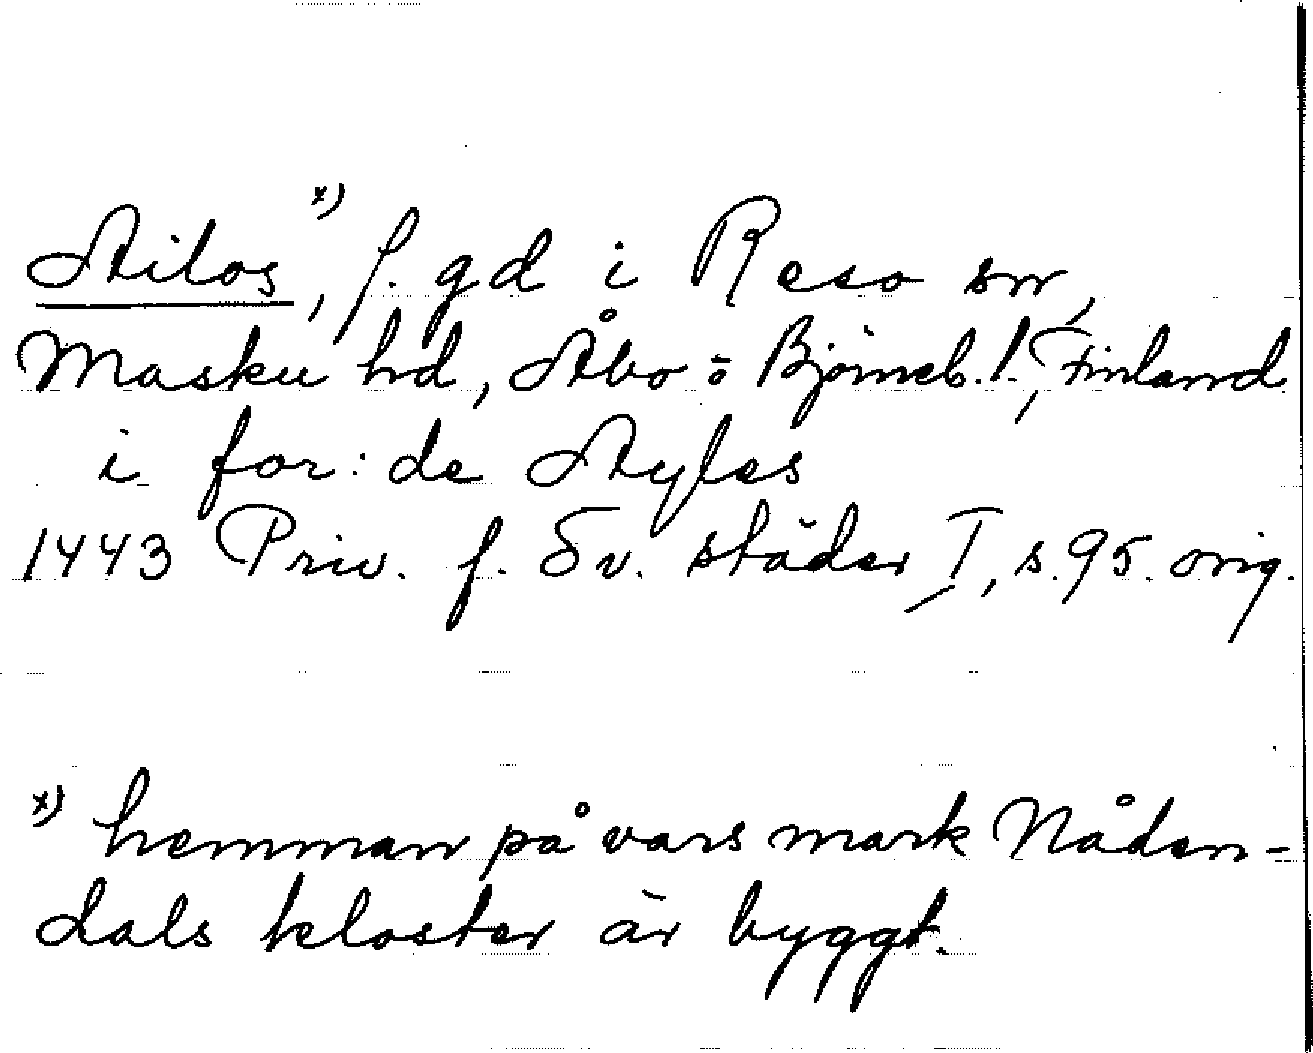 Ailos x), f. gd i Reso sn,
Masku hd, Åbo o Björneb. l., Finland
i for: de Ayles
1443 Priv. f. Sv. städer I, s. 95. orig.
x) hemman på vars mark Nåden-
dals kloster är byggt.